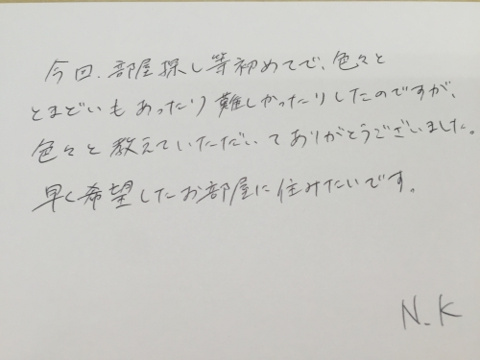 今回、部屋探し等初めてで、色々と
とまどいもあったり難しかったりしたのですが、
色々と教えていただいてありがとうございました。
早く希望したお部屋に住みたいです。
N.K